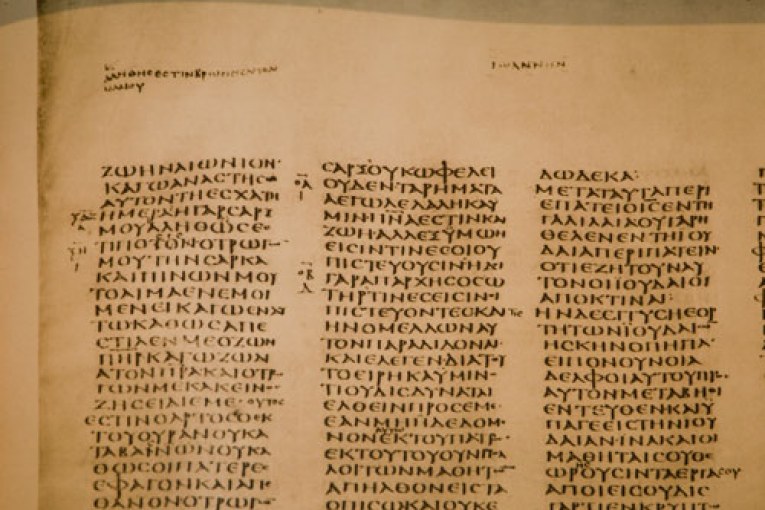 ΙΩΑΝΝΗΝ
ΖΩΗΝΑΙΩΝΙΟΝ·
ΚΑΓΩΑΝΑϹΤΗϹΩ
ΑΥΤΟΝΤΗΕϹΧΑΤΗ
ΗΜΕΡΑΗΓΑΡϹΑΡΞ
ΜΟΥΑΛΗΘΩϹΕ
ΠΟΤΟΝΟΤΡΩΓ
ΜΟΥΤΗΝϹΑΡΚΑ
ΚΑΙΠΙΝΩΝΜΟΥ
ΤΟΑΙΜΑΕΝΕΜΟΙ
ΜΕΝΕΙΚΑΓΩΕΝΑΥ
ΤΩΚΑΘΩϹΑΠΕ
ϹΤΙΛΕΝΜΕΟΖΩΝ
ΠΗΡΚΑΓΩΖΩΔΙ
ΑΤΟΝΠΡΑΚΑΙΟΤΡ
ΓΩΝΜΕΚΑΚΕΙΝΟ
ΖΗϹΕΙΔΙΕΜΕ· ΟΥΤΟϹ
ΕϹΤΙΝΟΑΡΤΟϹΟΕΚ
ΤΟΥΟΥΡΑΝΟΥΚΑ
ΤΑΒΑΙΝΩΝΟΥΚΑ
ΘΩϹΟΙΠΑΤΕΡΕ
ΕΦΑΓΟΝΚΑΙΑΠΕ
ΘΑΝΟΝΟΤΡΩΓ
ϹΑΡΞΟΥΚΩΦΕΛΕΙ
ΟΥΔΕΝΤΑΡΗΜΑΤΑ
ΑΕΓΩΛΕΛΑΛΗΚΑΥ
ΜΙΝΠΝΑΕϹΤΙΝΚΑΙ
ΖΩΗΑΛΛΕΞΥΜΩΝ
ΕΙϹΙΝΤΙΝΕϹΟΙΟΥ
ΠΙϹΤΕΥΟΥϹΙΝΗΔΙ
ΓΑΡΑΠΑΡΧΗϹΟϹΩ
ΤΗΡΤΙΝΕϹΕΙϹΙΝΟΙ
ΠΙϹΤΕΥΟΝΤΕϹΚΑΙΤΙϹ
ΗΝΟΜΕΛΛΩΝΑΥ
ΤΟΝΠΑΡΑΔΙΔΟΝΑΙ
ΚΑΙΕΛΕΓΕΝΔΙΑΤΟΥ
ΤΟΕΙΡΗΚΑΥΜΙΝΟ
ΤΙΟΥΔΙϹΔΥΝΑΤΑΙ
ΕΛΘΕΙΝΠΡΟϹΕΜΕ
ΕΑΝΜΗΗΔΕΔΟΜ
ΝΟΝΕΚΤΟΥΠΑΤΡ
ΕΚΤΟΥΤΟΥΟΥΝΠ
ΛΟΙΤΩΝΜΑΘΗΤ
ΑΠΗΛΘΟΝΕΙϹΤΑ
ΟΠΙϹΩΚΑΙΟΥΚΕ
ΔΩΔΕΚΑ·
ΜΕΤΑΤΑΥΤΑΠΕΡΙ
ΕΠΑΤΕΙΟΙϹΕΝΤΗ
ΓΑΛΙΛΑΙΑΟΥΓΑΡΗ
ΘΕΛΕΝΕΝΤΗΙΟΥ
ΔΑΙΑΠΕΡΙΠΑΤΕΙΝ·
ΟΤΙΕΖΗΤΟΥΝΑΥ
ΤΟΝΟΙΙΟΥΔΑΙΟΙ
ΑΠΟΚΤΙΝΑΙ·
ΗΝΔΕΕΓΓΥϹΗΕΟΡ
ΤΗΤΩΝΙΟΥΔΑΙ
ΗϹΚΗΝΟΠΗΓΙΑ
ΕΙΠΟΝΟΥΝΟΙΑ
ΔΕΛΦΟΙΑΥΤΟΥΠΡ
ΑΥΤΟΝΜΕΤΑΒΗΘΙ
ΕΝΤΕΥΘΕΝΚΑΙΥ
ΠΑΓΕΕΙϹΤΗΝΙΟΥ
ΔΑΙΑΝ·ΙΝΑΚΑΙΟΙ
ΜΑΘΗΤΑΙϹΟΥΘΕ
ΩΡΟΥϹΙΝΤΑΕΡΓΑϹΟΥ
ΑΠΟΙΕΙϹΟΥΔΙϹ
ΓΑΡΤΙΕΝΚΡΥΠΤ